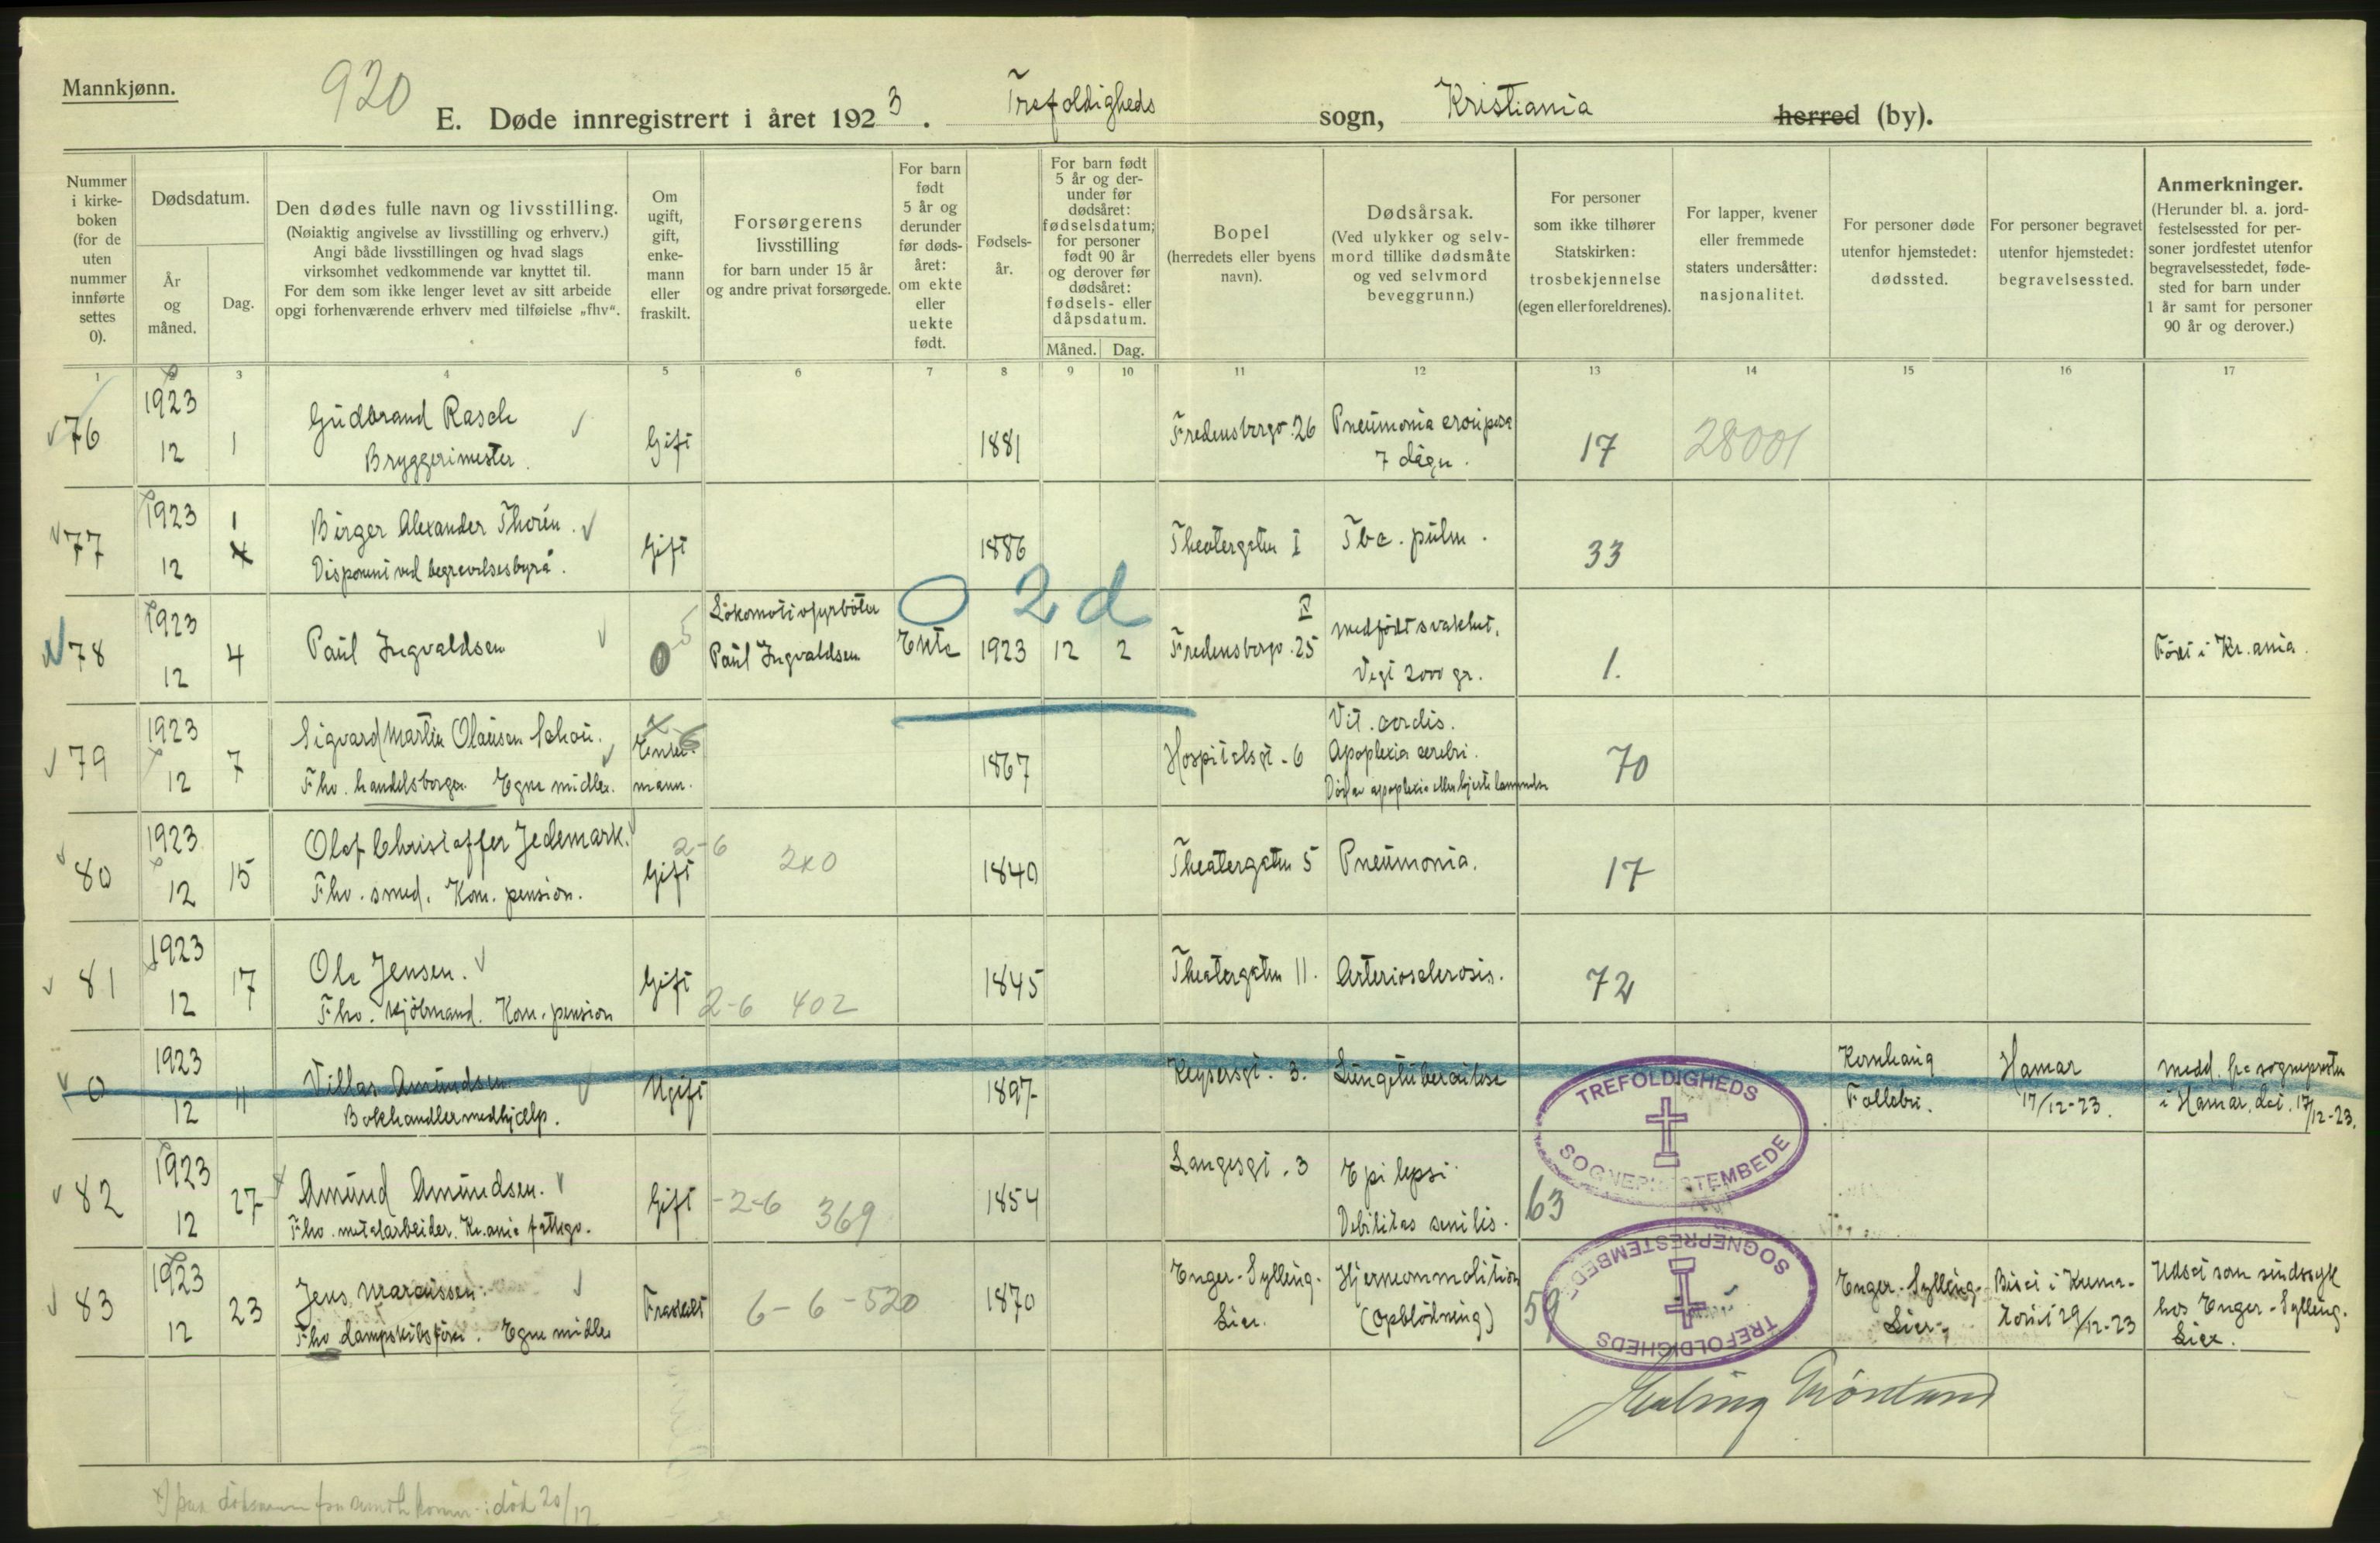 Mannkjønn.
920
E. Døde innregistrert i året 1923. Trefoldigheds sogn, Kristiania herred (by).
Nummer i kirke-boken (for de uten nummer innførte settes 0).
Dødsdatum.
År og måned.
Dag.
Den dødes fulle navn og livsstilling.
(Nøiaktig angivelse av livsstilling og erhverv.)
Angi både livsstillingen og hvad slags
virksomhet vedkommende var knyttet til.
For dem som ikke lenger levet av sitt arbeide
opgi forhenværende erhverv med tilføielse „fhv“.
Om ugift, gift, enke-mann eller fraskilt.
Forsørgerens livsstilling
for barn under 15 år
og andre privat forsørgede.
For barn født 5 år og derunder før døds-året: om ekte eller uekte født.
Fødsels-år.
For barn født 5 år og der-under før dødsåret: fødselsdatum; for personer født 90 år og derover før dødsåret: fødsels- eller dåpsdatum.
Måned. Dag.
Bopel
(herredets eller byens navn).
Dødsårsak.
(Ved ulykker og selv-mord tillike dødsmåte og ved selvmord beveggrunn.)
For personer som ikke tilhører Statskirken: trosbekjennelse (egen eller foreldrenes).
For lapper, kvener eller fremmede staters undersåtter: nasjonalitet.
For personer døde utenfor hjemstedet: dødssted.
For personer begravet utenfor hjemstedet: begravelsessted.
Anmerkninger.
(Herunder bl. a. jord-festelsessted for per-soner jordfestet utenfor begravelsesstedet, føde-sted for barn under 1 år samt for personer 90 år og derover.)
1 3 4 5 6 7 8 9 10 11 12 13 14 15 16 17
76 1923 12 1 Gudbrand Rasch Bryggerimester. Gift 1881 Fredensborgv. 26 Pneumonia crouposa 7 døgn. 17 28001
77 1923 12 1 Birger Alexander Thorén. Disponent ved begravelsesbyrå. Gift 1886 Theatergaten I Tbc. pulm. 33
O 2 d
78 1923 12 4 Paul Ingvaldsen 0 5 Lokomotivfyrbøter Paul Ingvaldsen Ekte 1923 12 2 Fredensborgv. 25 IV medfødt svakhet. Vegt 2000 gr. 1. Født i Kr.ania.
79 1923 12 7 Sigvard Martin Olausen Schou. Fhv. handelsborger. Egne midler. Enke-mann. 1867 Hospitalsgt. 6 Vit. cordis. Apoplexia cerebri. Død av apoplexia eller hjertelammelse 70
80 1923 12 15 Olaf Christoffer Jedemark. Fhv. smed. Kom. pension. Gift 2-6 2x0 1840 Theatergaten 5 Pneumonia. 17
81 1923 12 17 Ole Jensen. Fhv. kjölmand. Kom. pension Gift 2-6 402 1845 Theatergaten 11. Arteriosclerosis. 72
0 1923 12 11 Villas Amundsen Bokhandlermedhjælp. Ugift 1897 Keysersgt. 3. Lungetuberculose Kornhaug Follebu. Hamar 17/12-23. Medd. fra sogneprsten i Hamar, dat. 17/12-23.
TREFOLDIGHEDS SOGNEPRESTEMBEDE
82 1923 12 27 Amund Amundsen. Fhv. metalarbeider. Kr.ania fattigv. Gift -2-6 369 1854 Langesgt. 3 Epilepsi. Debilitas senilis. 63
TREFOLDIGHEDS SOGNEPRESTEMBEDE
83 1923 12 23 Jens Marcussen. Fhv dampskibsfører. Egne midler Fraskilt 6-6-520 1870 Enger-Sylling. Lier. Hjernecommolition (Opblödning) 59 Enger-Sylling. Lier. Bisat i Krema-toriet 29/12-23 Udsat som sindssyk hos Enger-Sylling. Lier.
Grönlund
x) død 20/12